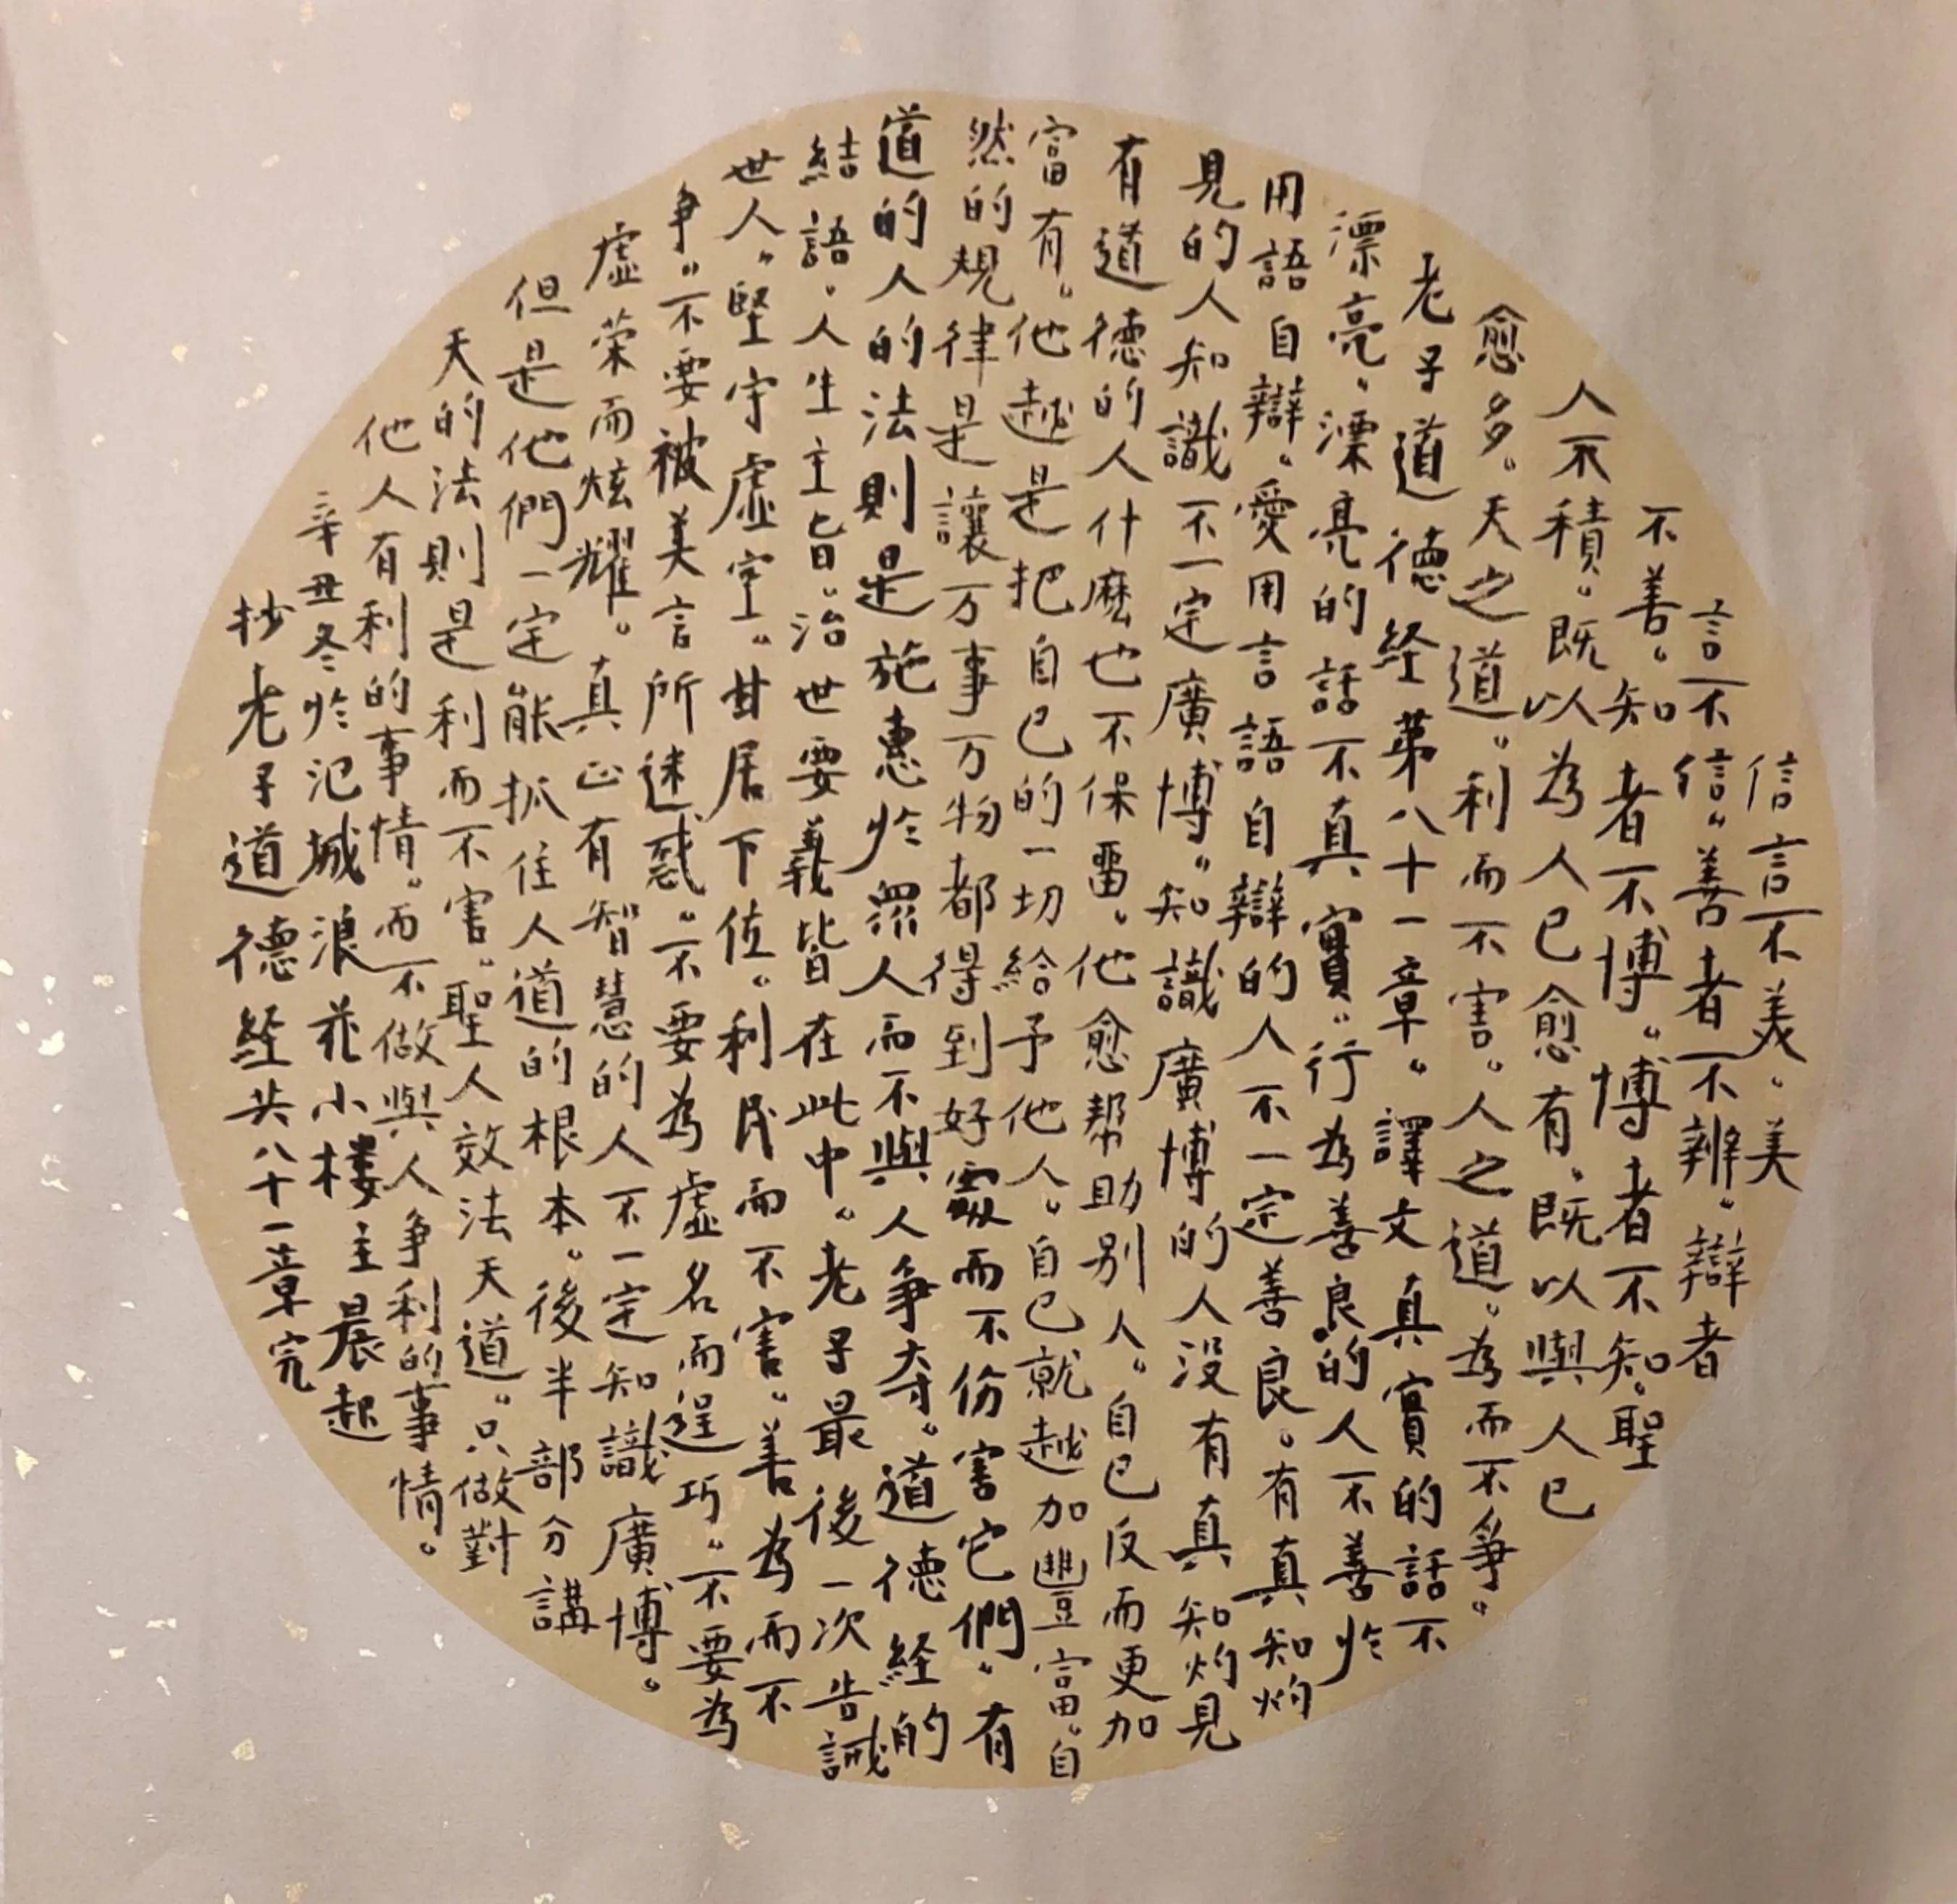 信言不美。美
言不信。善者不辨。辯者
不善。知者不博。博者不知。聖
人不積。既以為人已愈有。既以與人已
愈多。天之道。利而不害。人之道。為而不爭。
老子道德経第八十一章。譯文真實的話不
漂亮。漂亮的話不真實。行為善良的人不善於
用語自辯。愛用言語自辯的人不一定善良。有真知灼
見的人知識不一定廣博。知識廣博的人没有真知灼見
有道德的人什麽也不保畱。他愈幫助别人。自已反而更加
富有。他越是把自已的一切給予他人。自已就越加豐富。自
然的規律是讓万事万物都得到好處而不份害它們。有
道的人的法則是施惠於眾人而不與人爭夺。道德経的
結語。人生主旨。治世要義皆在此中。老子最後一次告誡
世人。堅守虛空。甘居下位。利民而不害。善為而不
爭。不要被美言所迷惑。不要為虛名而逞巧。不要為
虛荣而炫耀。真正有智慧的人不一定知識廣博。
但是他們一定能抓住人道的根本。後半部分講
天的法則是利而不害。聖人效法天道。只做對
他人有利的事情。而不做與人爭利的事情。
辛丑冬於汜城浪花小樓主晨起
抄老子道德経共八十一章完